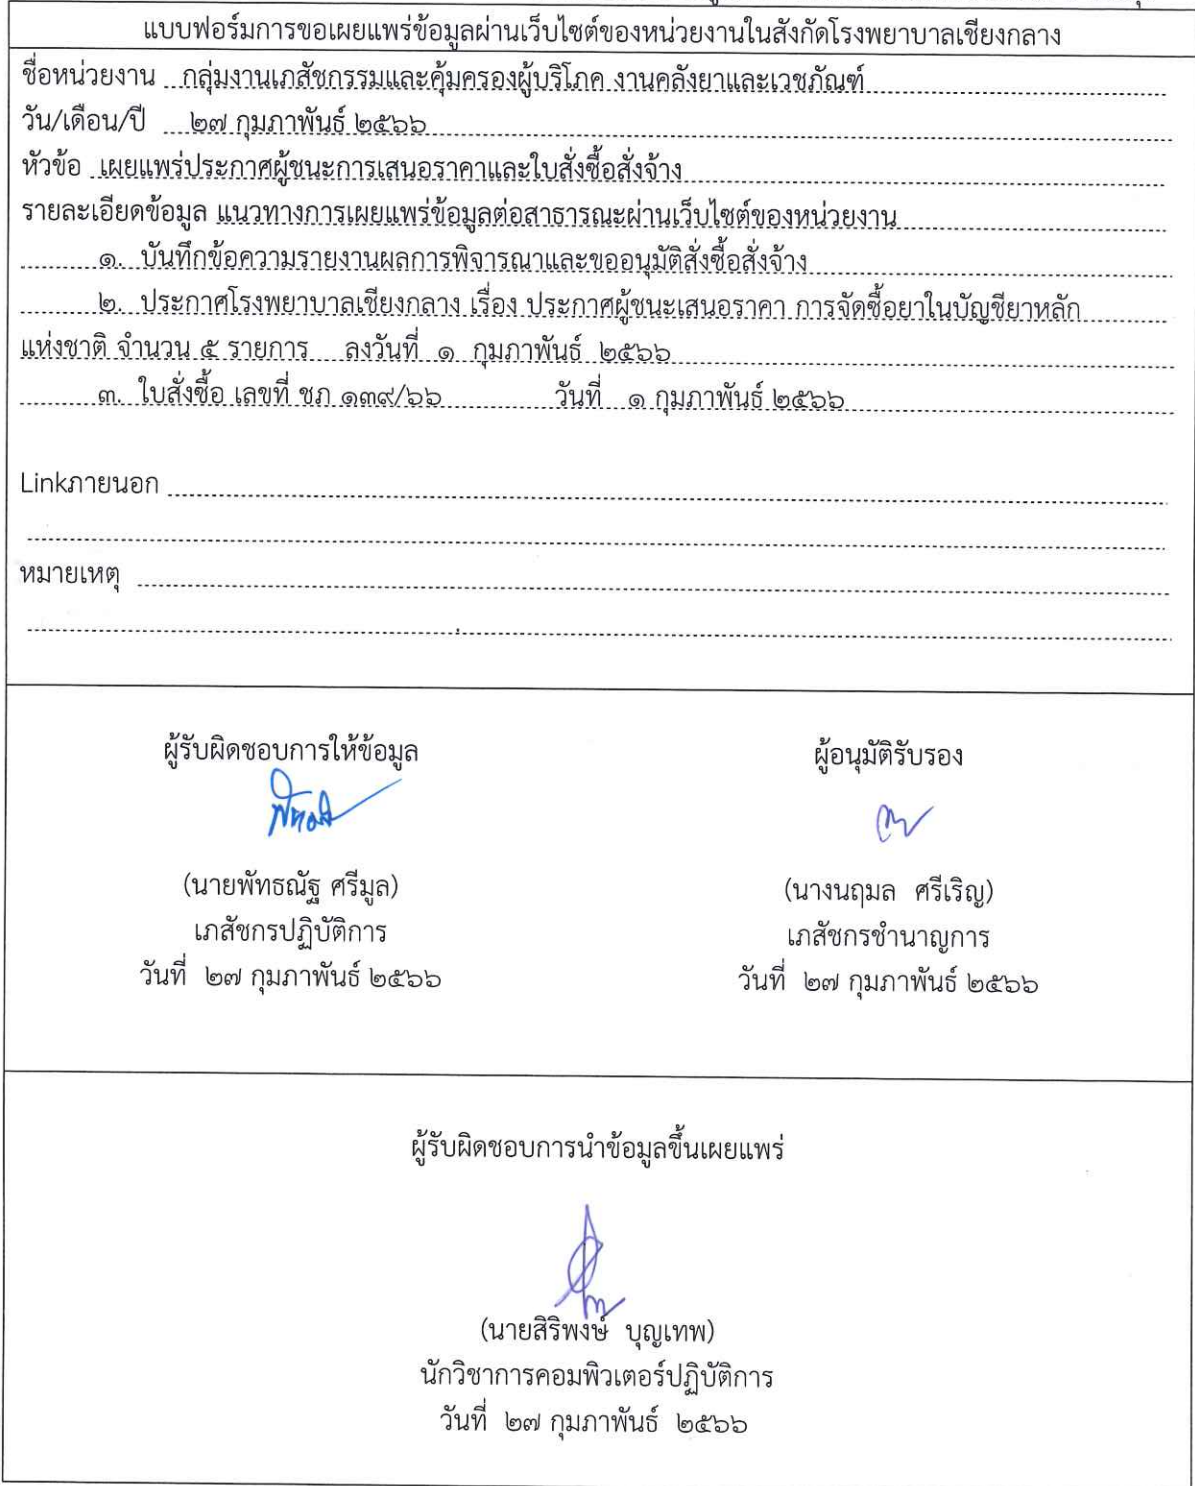 แบบฟอร์มการขอเผยแพร่ข้อมูลผ่านเว็บไซต์ของหน่วยงานในสังกัดโรงพยาบาลเชียงกลาง
ชื่อหน่วยงาน กลุ่มงานเภสัชกรรมและคุ้มครองผู้บริโภค งานคลังยาและเวชภัณฑ์
วัน/เดือน/ปี ๒๗ กุมภาพันธ์ ๒๕๖๖
หัวข้อ เผยแพร่ประกาศผู้ชนะการเสนอราคาและใบสั่งซื้อสั่งจ้าง
รายละเอียดข้อมูล แนวทางการเผยแพร่ข้อมูลต่อสาธารณะผ่านเว็บไซต์ของหน่วยงาน
๑. บันทึกข้อความรายงานผลการพิจารณาและขออนุมัติสั่งซื้อสั่งจ้าง
๒. ประกาศโรงพยาบาลเชียงกลาง เรื่อง ประกาศผู้ชนะเสนอราคา การจัดซื้อยาในบัญชียาหลัก
แห่งชาติ จำนวน ๕ รายการ ลงวันที่ ๑ กุมภาพันธ์ ๒๕๖๖
๓. ใบสั่งซื้อ เลขที่ ชภ ๑๓๙/๖๖ วันที่ ๑ กุมภาพันธ์ ๒๕๖๖
Linkภายนอก
หมายเหตุ
ผู้รับผิดชอบการให้ข้อมูล
(นายพัทธณัฐ ศรีมูล)
เภสัชกรปฏิบัติการ
วันที่ ๒๗ กุมภาพันธ์ ๒๕๖๖
ผู้อนุมัติรับรอง
(นางนฤมล ศรีเริญ)
เภสัชกรชำนาญการ
วันที่ ๒๗ กุมภาพันธ์ ๒๕๖๖
ผู้รับผิดชอบการนำข้อมูลขึ้นเผยแพร่
(นายสิริพงษ์ บุญเทพ)
นักวิชาการคอมพิวเตอร์ปฏิบัติการ
วันที่ ๒๗ กุมภาพันธ์ ๒๕๖๖